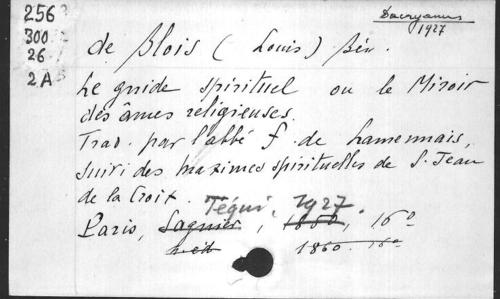 256
300
26
2 A
Dacryanus
1927
de Blois ( Louis ) Bén.
Le guide spirituel ou le Miroir
des âmes religieuses.
Trad. par l'abbé F. de Lamennais,
suivi des maximes spirituelles de S. Jean
de la Croix.
Téqui, 1927.
Paris, Sagnier, 1860, 16°
1860. 16°